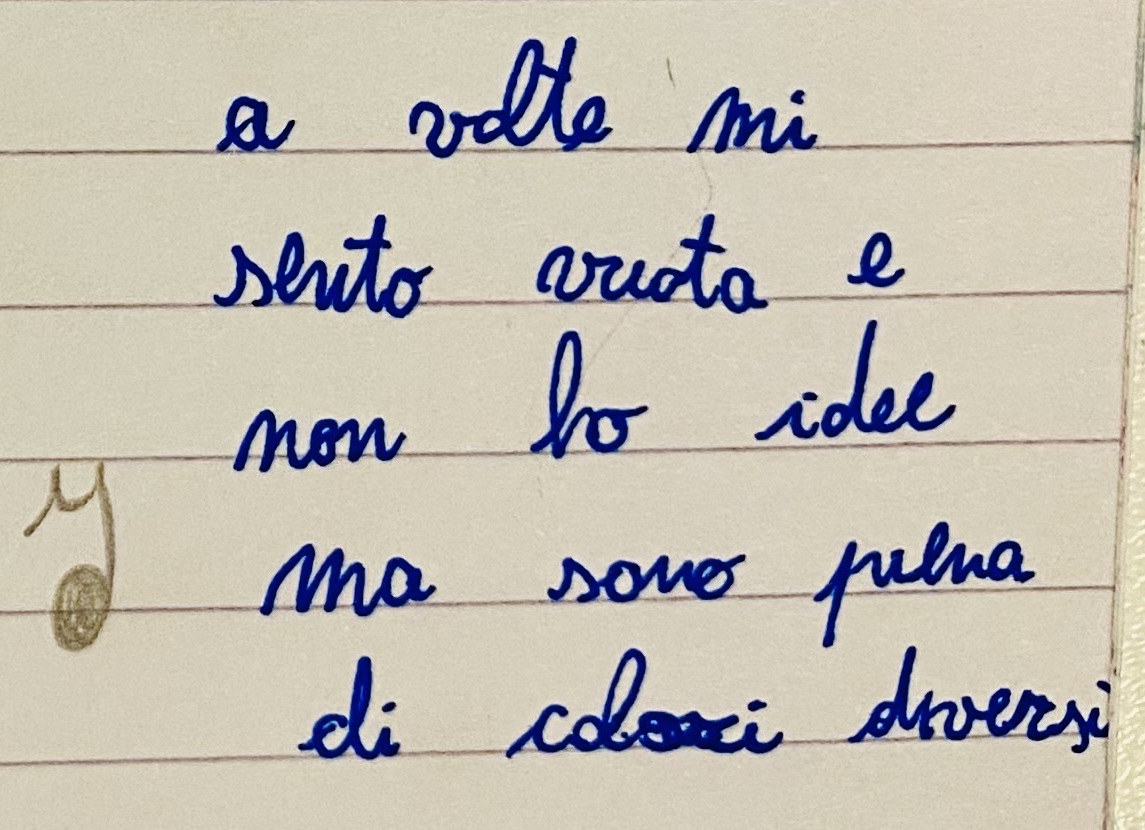 a volte mi
sento vuota e
non ho idee
ma sono piena
di colori diversi